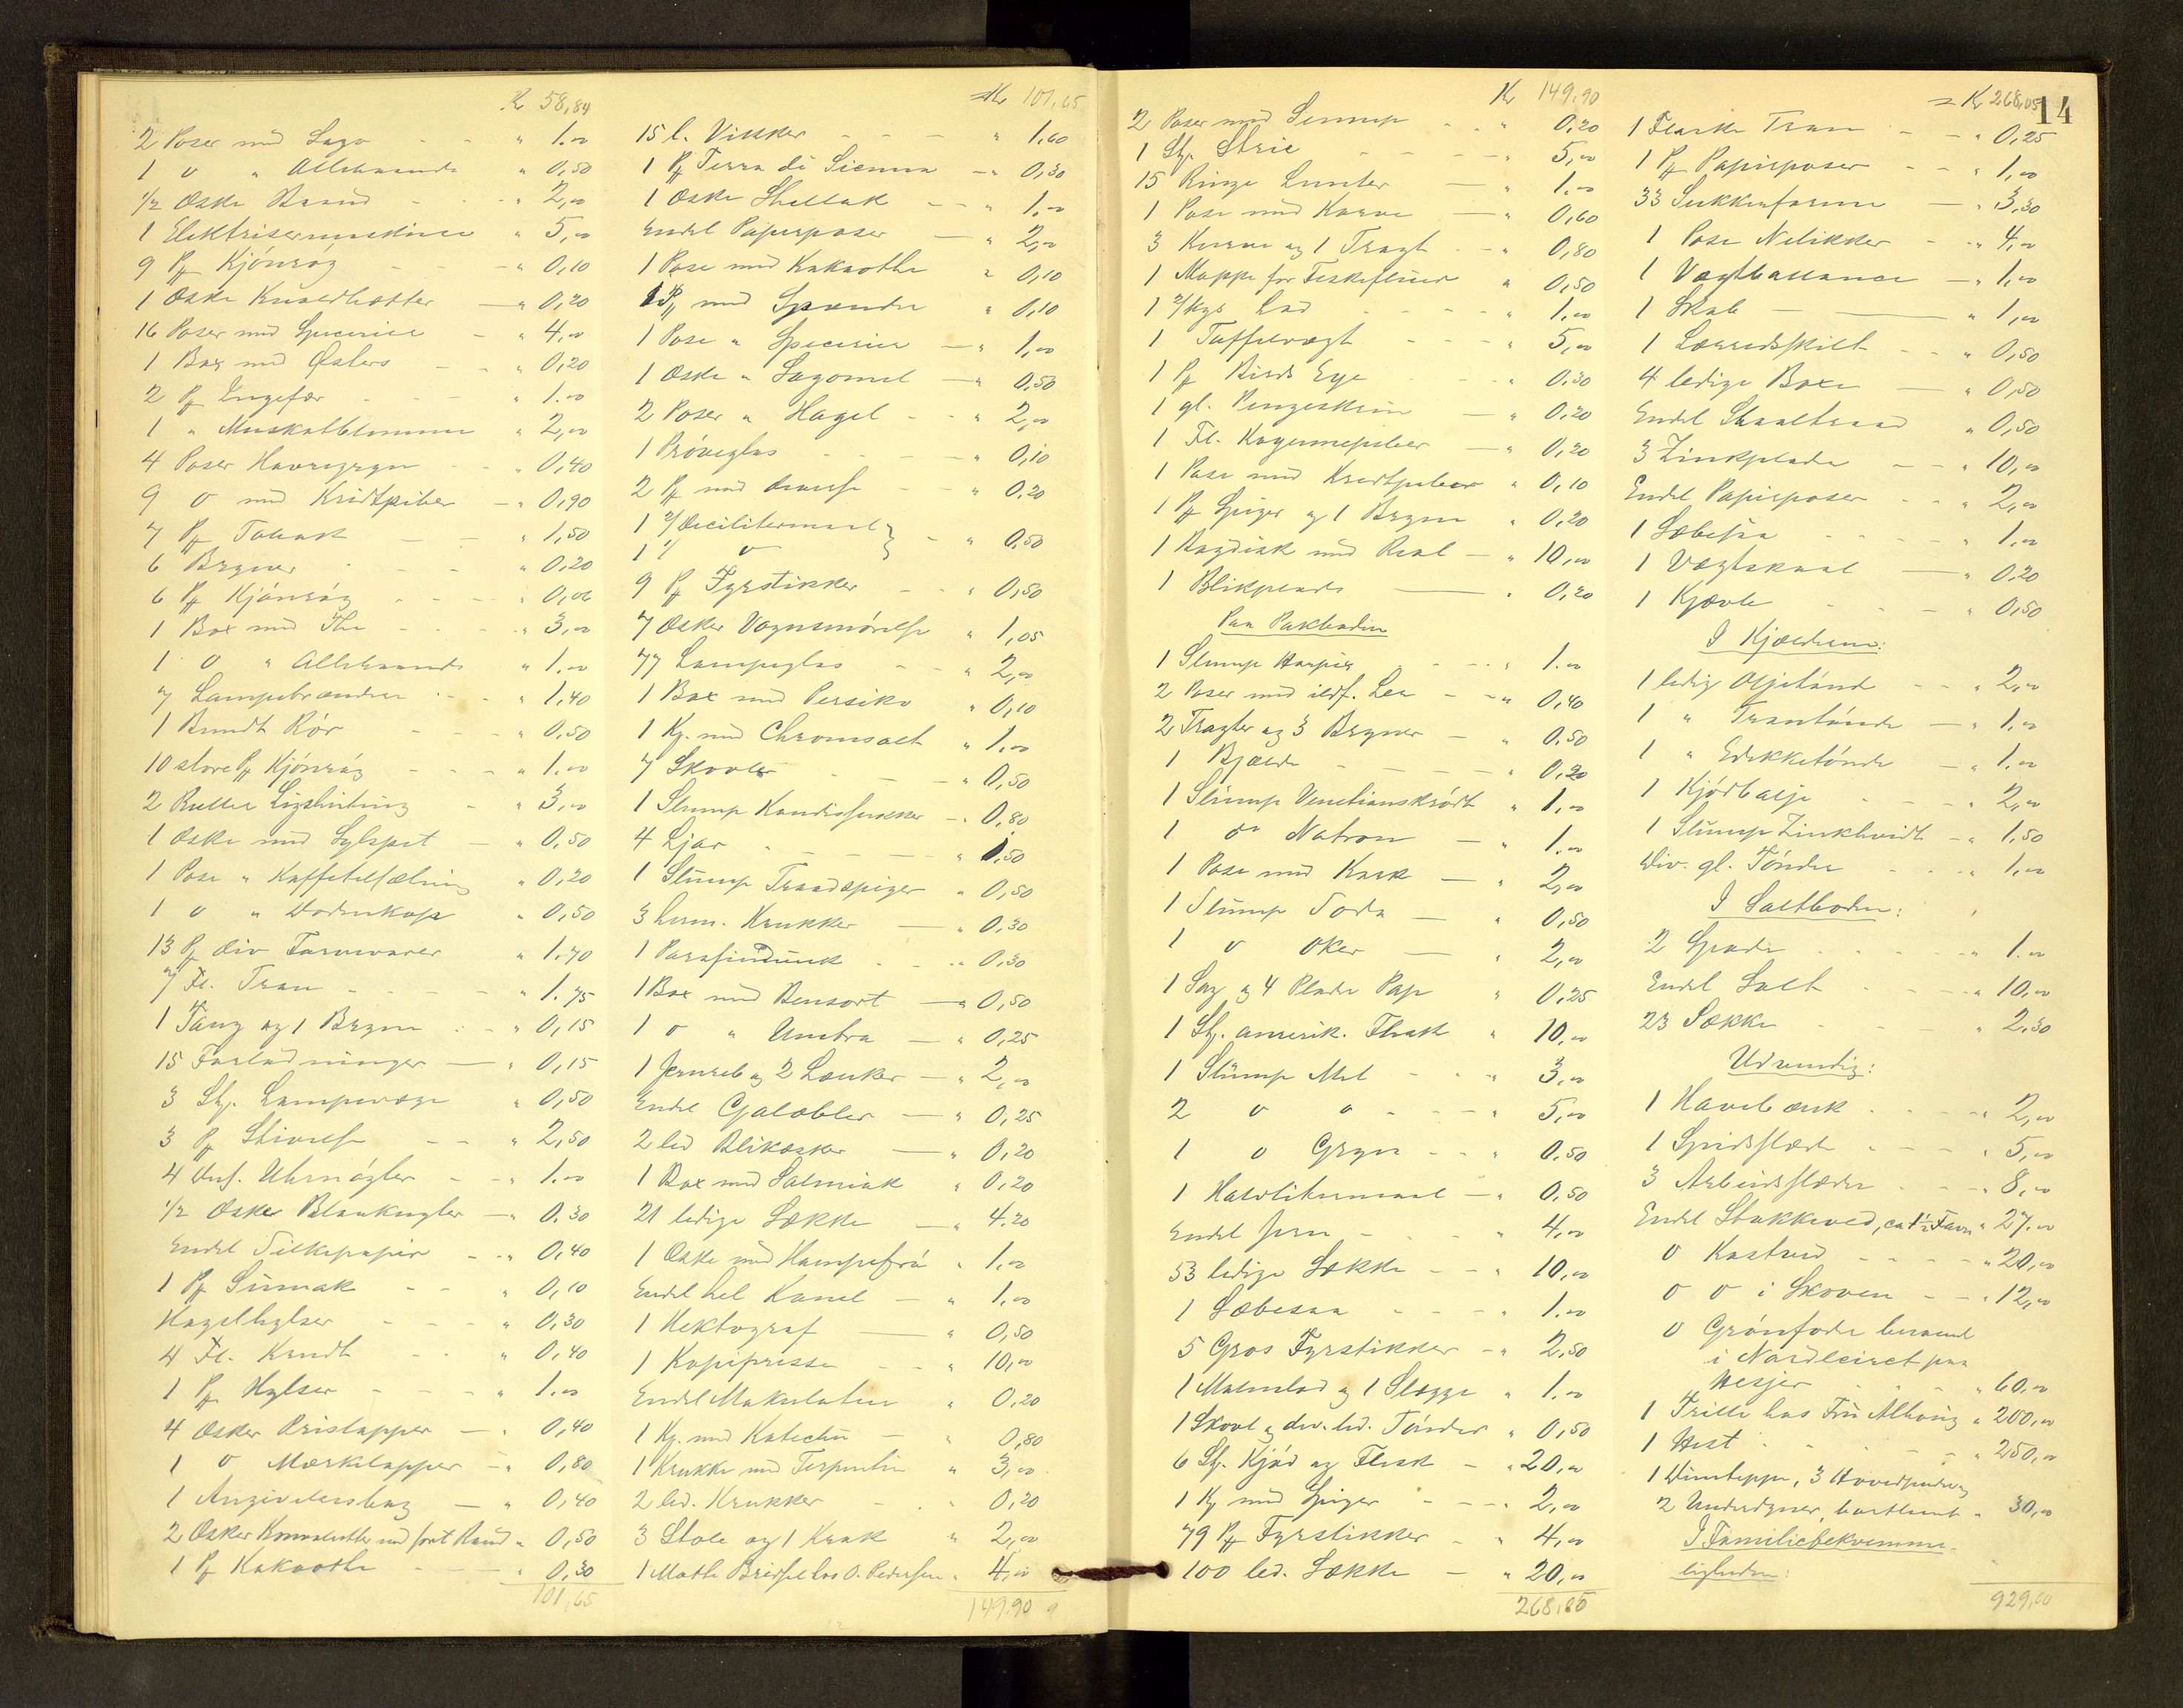 Kr 58,84
2 Poser med Sago - - " 1.00
1 o " Allehaande " 0,50
1/2 Æske Baand - - " 2,00
1 Elektrisermaskine " 5,00
9 Pk Kjönrög - - " 0,10
1 Æske Knaldhætter - " 0,20
16 Poser med Specerier - " 4,00
1 Box med Østers - " 0,20
2 Pk Ingefær - - " 1.00
1 " Muskatblomme " 2,00
4 Poser Havregryn - - " 0,40
9 o med Kridtpiber - " 0,90
7 Pk Tobak - - " 1,50
6 Bryner - - - " 0,20
6 Pk Kjönrög - - - " 0,06
1 Box med The - - - " 3,00
1 o " Allehaande " 1.00
7 Lampebrændere - - " 1,40
1 Bundt Rör - - - " 0,50
10 store Pk Kjönrög - - " 1.00
2 Ruller Ligslintring - " 3,00
1 Æske med Sylspet - " 0,50
1 Pose " Kaffetilsætning " 0,20
1 o " Dodenkop " 0,50
13 Pk div Farvevarer " 1.70
7 Fl. Tran - - - " 1.75
1 Tang og 1 Bryne - " 0,15
15 Forladninger - " 0,15
3 Stk. Lampevæge " 0,50
3 Pk Stivelse - - " 2,50
4 Dus. Uhrnögler - - " 1.00
1/2 Æske Blanknagler - " 0.30
Endel Silkepapir - - " 0,40
1 Pk Sumak - - " 0,10
Hagelhylser - - - " 0,30
4 Fl. Krudt - - " 0,40
1 Pk Hylser - - - " 1.00
4 Æsker Prislapper - " 0,40
1 o Mærkelapper - " 0,80
1 Angivelsesbog - " 0,40
2 Æsker Konvolutter med sort Rand " 0,50
1 Pk Kakaothe - - " 0,30
101,65
Kr 101,65
15 l. Visker - - - " 1,60
1 Pk Terra di Sienna - " 0,30
1 Æske Shellak - - " 1.00
Endel Papirposer - " 2,00
1 Pose med Kakaothe " 0,10
1 Pk med Spændre " 0,10
1 Pose " Specerier - " 1,00
1 Æske " Sagomel - " 0,50
2 Poser " Hagel - - " 2,00
1 Pröveglas - - - " 0,10
2 Pk med - - " 0,20
1 2/ Decilitermaal } - " 0,50
1 1/ o
9 Pk Fyrstikker - - " 0,50
7 Æsker Vognsmörelse " 1,05
77 Lampeglas - - " 2,00
1 Box med Persiko " 0,10
1 Kg. med Chromsalt " 1.00
7 Skovler - - - " 0,50
1 Slump Kandissukker - " 0,80
4 Ljar - - - " 1,50
1 Slump Traadspiger " 0,50
3 herm. Krukker - " 0,30
1 Parafindunk - - " 0,30
1 Box med Bensort - " 0,50
1 o " Umbra - " 0,25
1 Jernreb og 2 Lænker - " 2,00
Endel Galæbler - " 0,25
2 led Blikæsker - " 0,20
1 Box med Salmiak " 0,20
21 ledige Sække - " 4.20
1 Æske med Hampefrö " 1,00
Endel hel Kanel - " 1.00
1 Hektograf - " 0,50
1 Kopipresse - - " 10,00
Endel Makulatur " 0,20
1 Kg. med Katechu - " 0,80
1 Krukke med Terpentin " 3,00
2 led. Krukker - " 0,20
3 Stole og 1 Krak " 2,00
1 Maatte Bredsel hos O. Pedersen " 4,00
149.90
Kr 149,90
2 Poser med Sennep - - " 0,20
1 Stk. Strie - - - " 5,00
15 Ringe Lunter - " 1.00
1 Pose med Karve - " 0,60
3 Kurve og 1 Tragt - " 0,80
1 Mappe for Fiskefluer " 0,50
1 2/Kgs Lod - - - " 1.00
1 Taffelvægt - - " 5,00
1 Pk Birds Eye - - " 0,30
1 gl. Pengeskrin - " 0,20
1 Fl. Kayennepeber - " 0,20
1 Pose med Kridtpiber " 0,10
1 Pk Spiger og 1 Bryne " 0,20
1 Bagdisk med Reol - " 10,00
1 Blikpande - " 0,20
Paa Pakboden
1 Slump Harpix - - " 1.00
2 Poser med ildf. Ler - " 0,40
2 Tragter og 3 Bryner - " 0,50
1 Bjælde - - - " 0,20
1 Slump Venetianskrödt " 1,00
1 o Natron - " 1.00
1 Pose med Kork - " 2,00
1 Slump Soda - " 0,50
1 o Oker - " 2,00
1 Sag og 4 Plader Pap " 0,25
1 Stk. amerik. Flesk " 10,00
1 Slump Mel - - " 3,00
2 o o - - " 5,00
1 o Gryn - - " 0.50
1 Halvlitermaal - " 0,50
Endel Jern - - " 4,00
53 ledige Sække - - " 10,00
1 Sæbesaa - - - " 1.00
5 Gros Fyrstikker - " 2,50
1 Malmlod og 1 Slægge " 1,00
1 Skovl og div. led. Tönder " 0,50
6 Stk. Kjöd og Flesk - " 20,00
1 Kg med Spiger - - " 2,00
79 Pk Fyrstikker - " 4,00
100 led. Sække - " 20,00
268,05
= Kr 268,05
14
1 Flaske Tran - - " 0,25
1 Pk Papirposer - - " 1,00
33 Sukkerforme - " 3,30
1 Pose Nelikker - - " 4,00
1 Vægtballance - " 1,00
1 Skab - " 1,00
1 Lærredsskilt - - " 0,50
4 ledige Boxe - " 0,50
Endel Staaltraad " 0,50
3 Zinkplader - - " 10,00
Endel Papirposer - - " 2,00
1 Sæbesaa - - - " 1.00
1 Vægtskaal - " 0,20
1 Kjævle - - - " 0,50
I Kjælderen:
1 ledig Oljetönde - - " 2,00
1 " Trantönde - " 1.00
1 " Edikketönde - " 1.00
1 Kjödbalje - - - " 2,00
1 Slump Zinkhvidt - " 1,50
Div. gl. Tönder - - " 1,00
I Saltboden:
2 Spader - - - " 1.00
Endel Salt - - - " 10,00
23 Sække - - - " 2,30
Udvendig:
1 Havebænk - - - " 2,00
1 Spidsslæde - - - " 5,00
3 Arbeidsslæder - - " 8,00
Endel Stakkeved, ca 1 1/2 Favn " 27,00
o Kastved - - - " 20,00
o o i Skoven - - " 12,00
o Grönfoder
i Nordleiret paa
Hesjer - - " 60,00
1 Trille hos Fru Alhoug " 200,00
1 Hest - - - - " 250,00
2 Underdyner, bortlaant " 30,00
I Familiebekvemme-
ligheden:
929,60